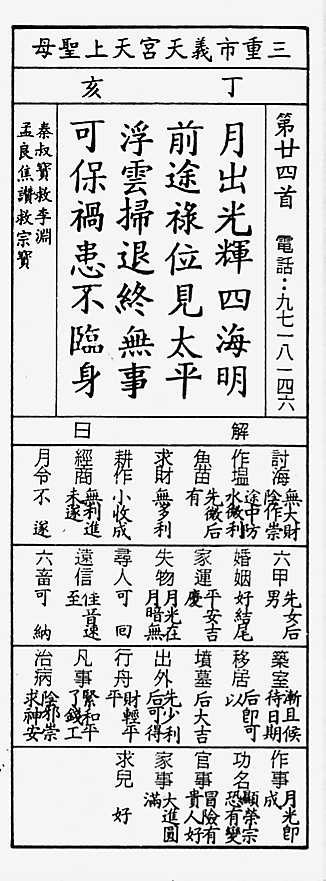 三重市義天宮天上聖母
丁亥
第廿四首　電話：九七一八一四六
月出光輝四海明
前途祿位見太平
浮雲掃退終無事
可保禍患不臨身
秦叔寶救李淵
孟良焦讚救宗寶
解曰
討海　無大財陰作崇
作塩　途中坊水微利
魚苗　先微后有
求財　無多利
耕作　小收成
經商　無利進未遂
月令　不遂
六甲　先女后男
婚姻　好結尾
家運　平安吉慶
失物　月光在月暗無
尋人　可回
遠信　佳首速至
六畜　可納
築室　漸且候待日期
移居　后即可以
墳墓　后大吉
出外　先少利后可得
行舟　財輕平平
凡事　緊和平了錢工
治病　陰邪崇求神安
作事　月光即成
功名　顯榮宗恐有變
官事　冒險有貴人好
家事　大進圓滿
求兒　好